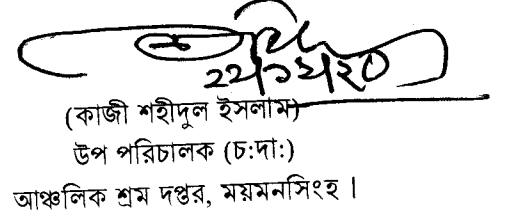 ২২/১২/২০
(কাজী শহীদুল ইসলাম)
উপ পরিচালক (চ:দা:)
আঞ্চলিক শ্রম দপ্তর, ময়মনসিংহ।